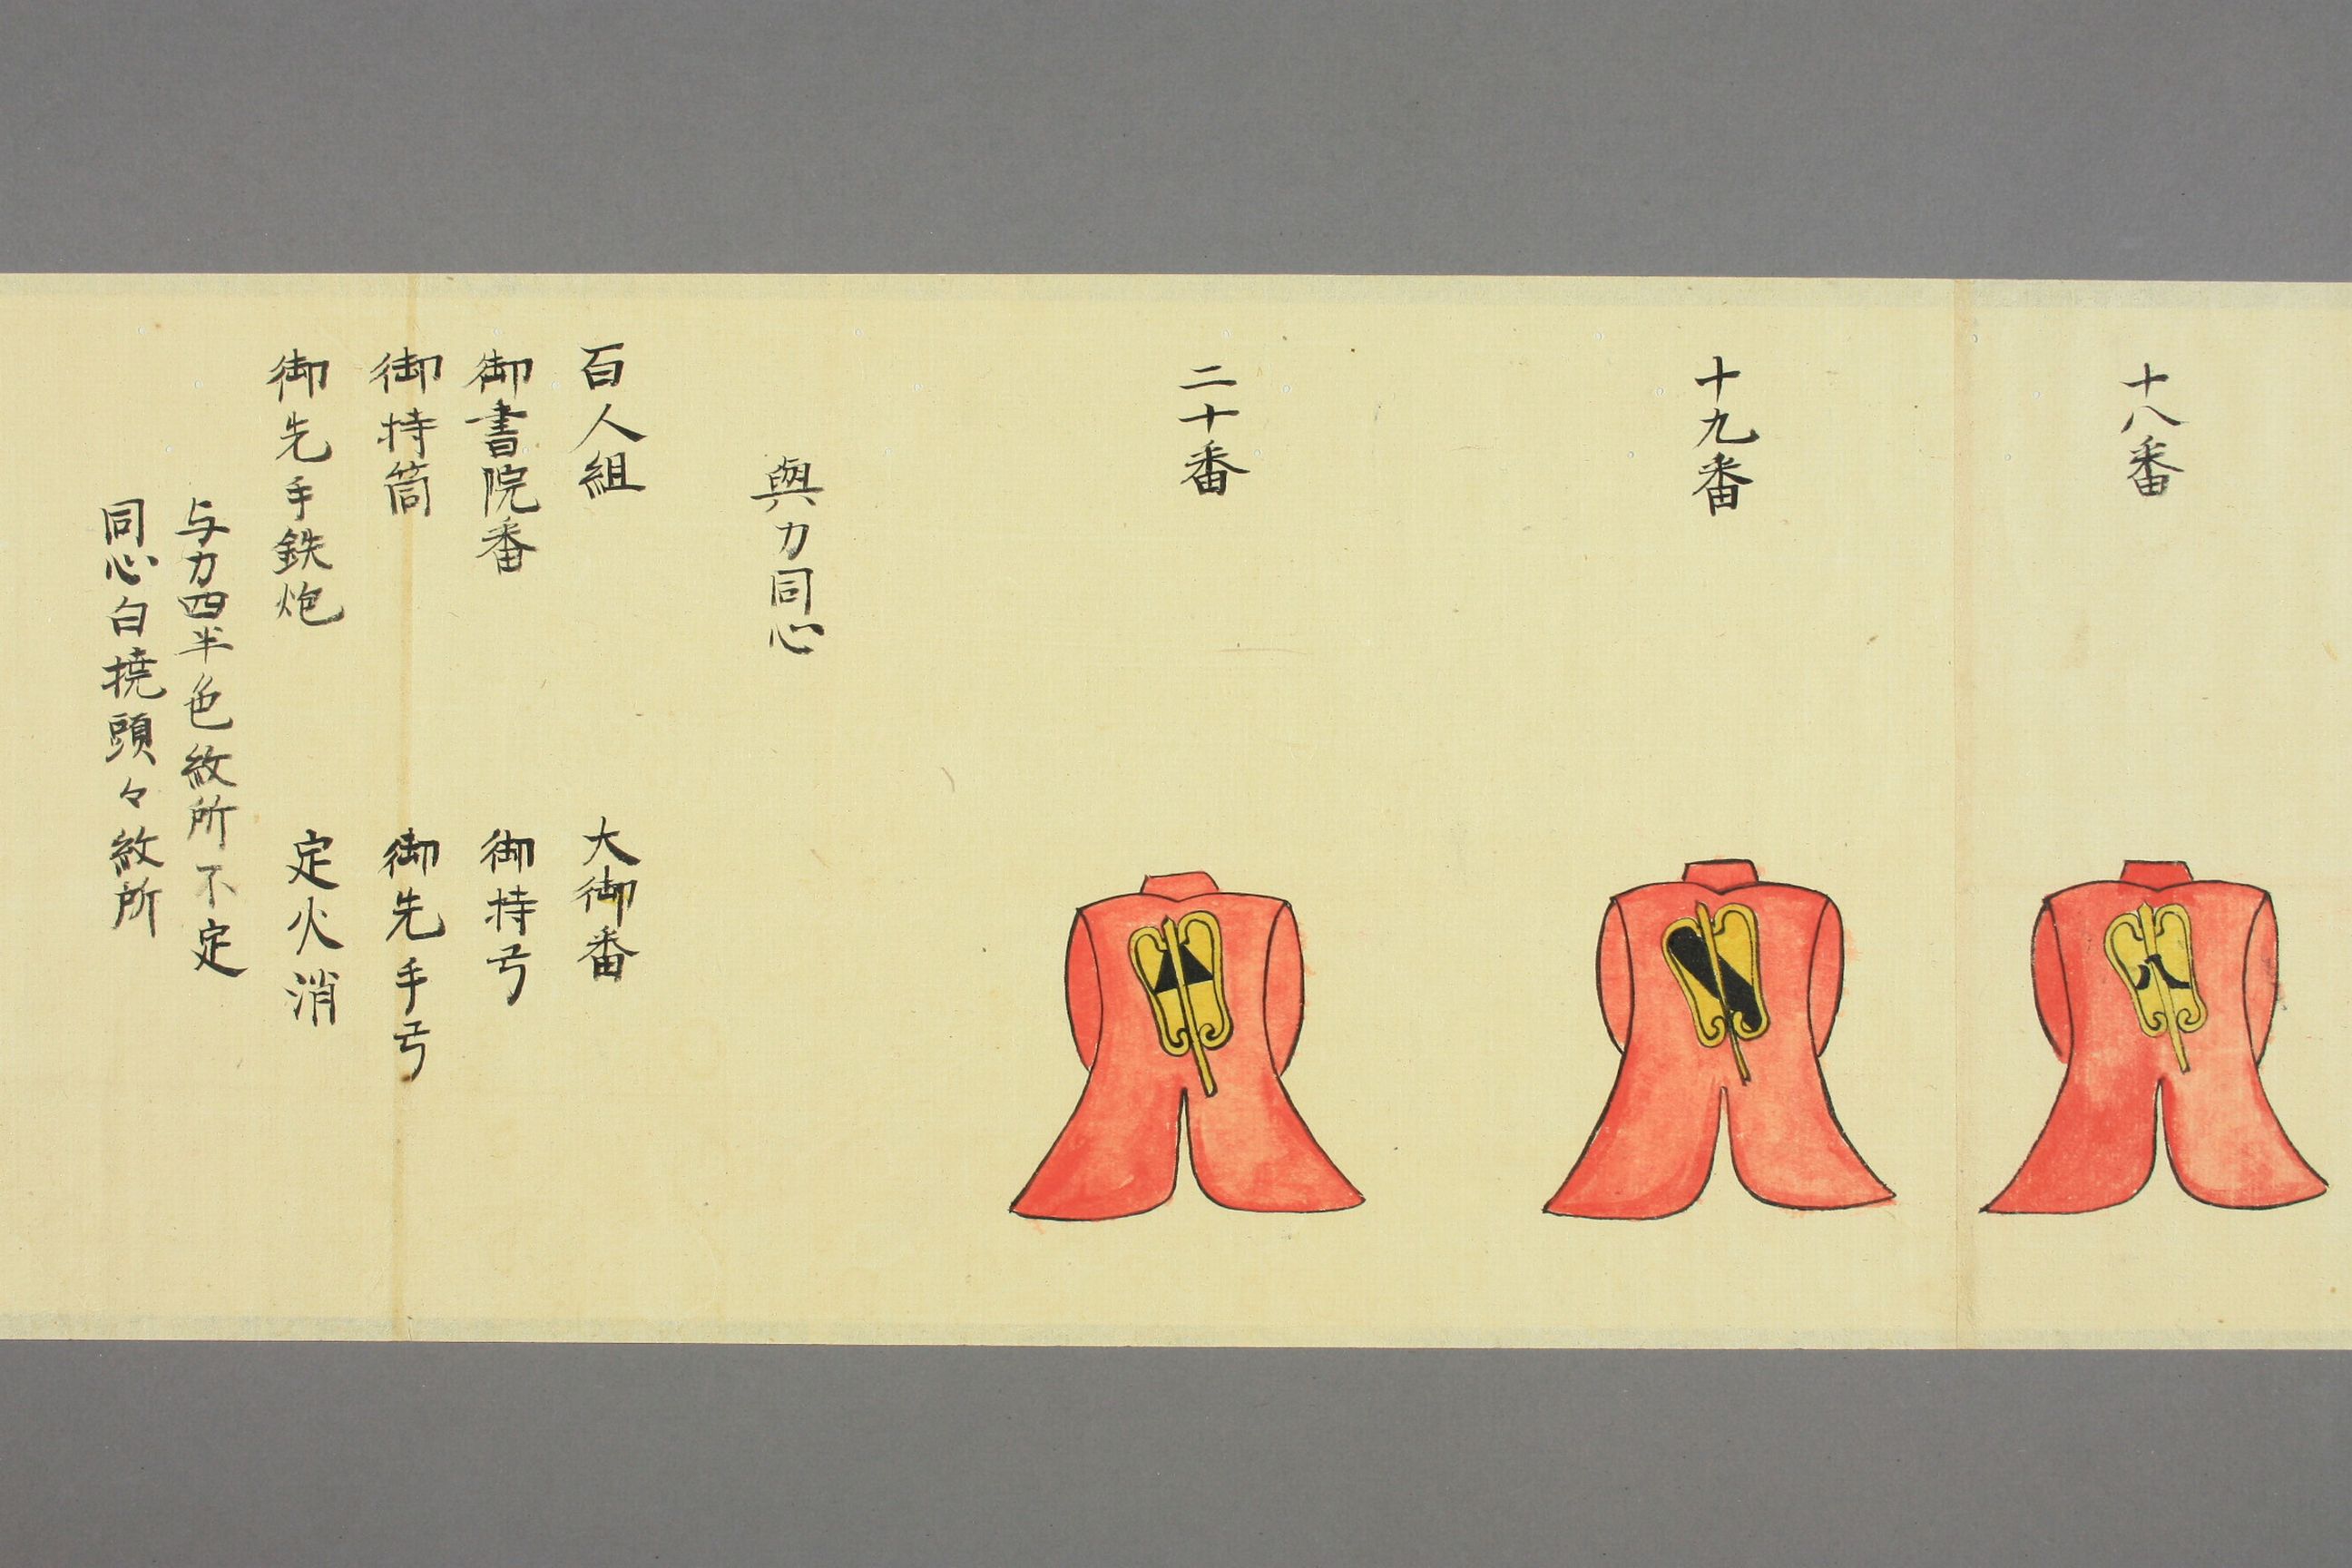 十八番
八
十九番
二十番
與力同心
百人組
大御番
御書院番
御持弓
御持筒
御先手弓
御先手鉄炮
定火消
与力四半色紋所不定
同心白撓頭々紋所